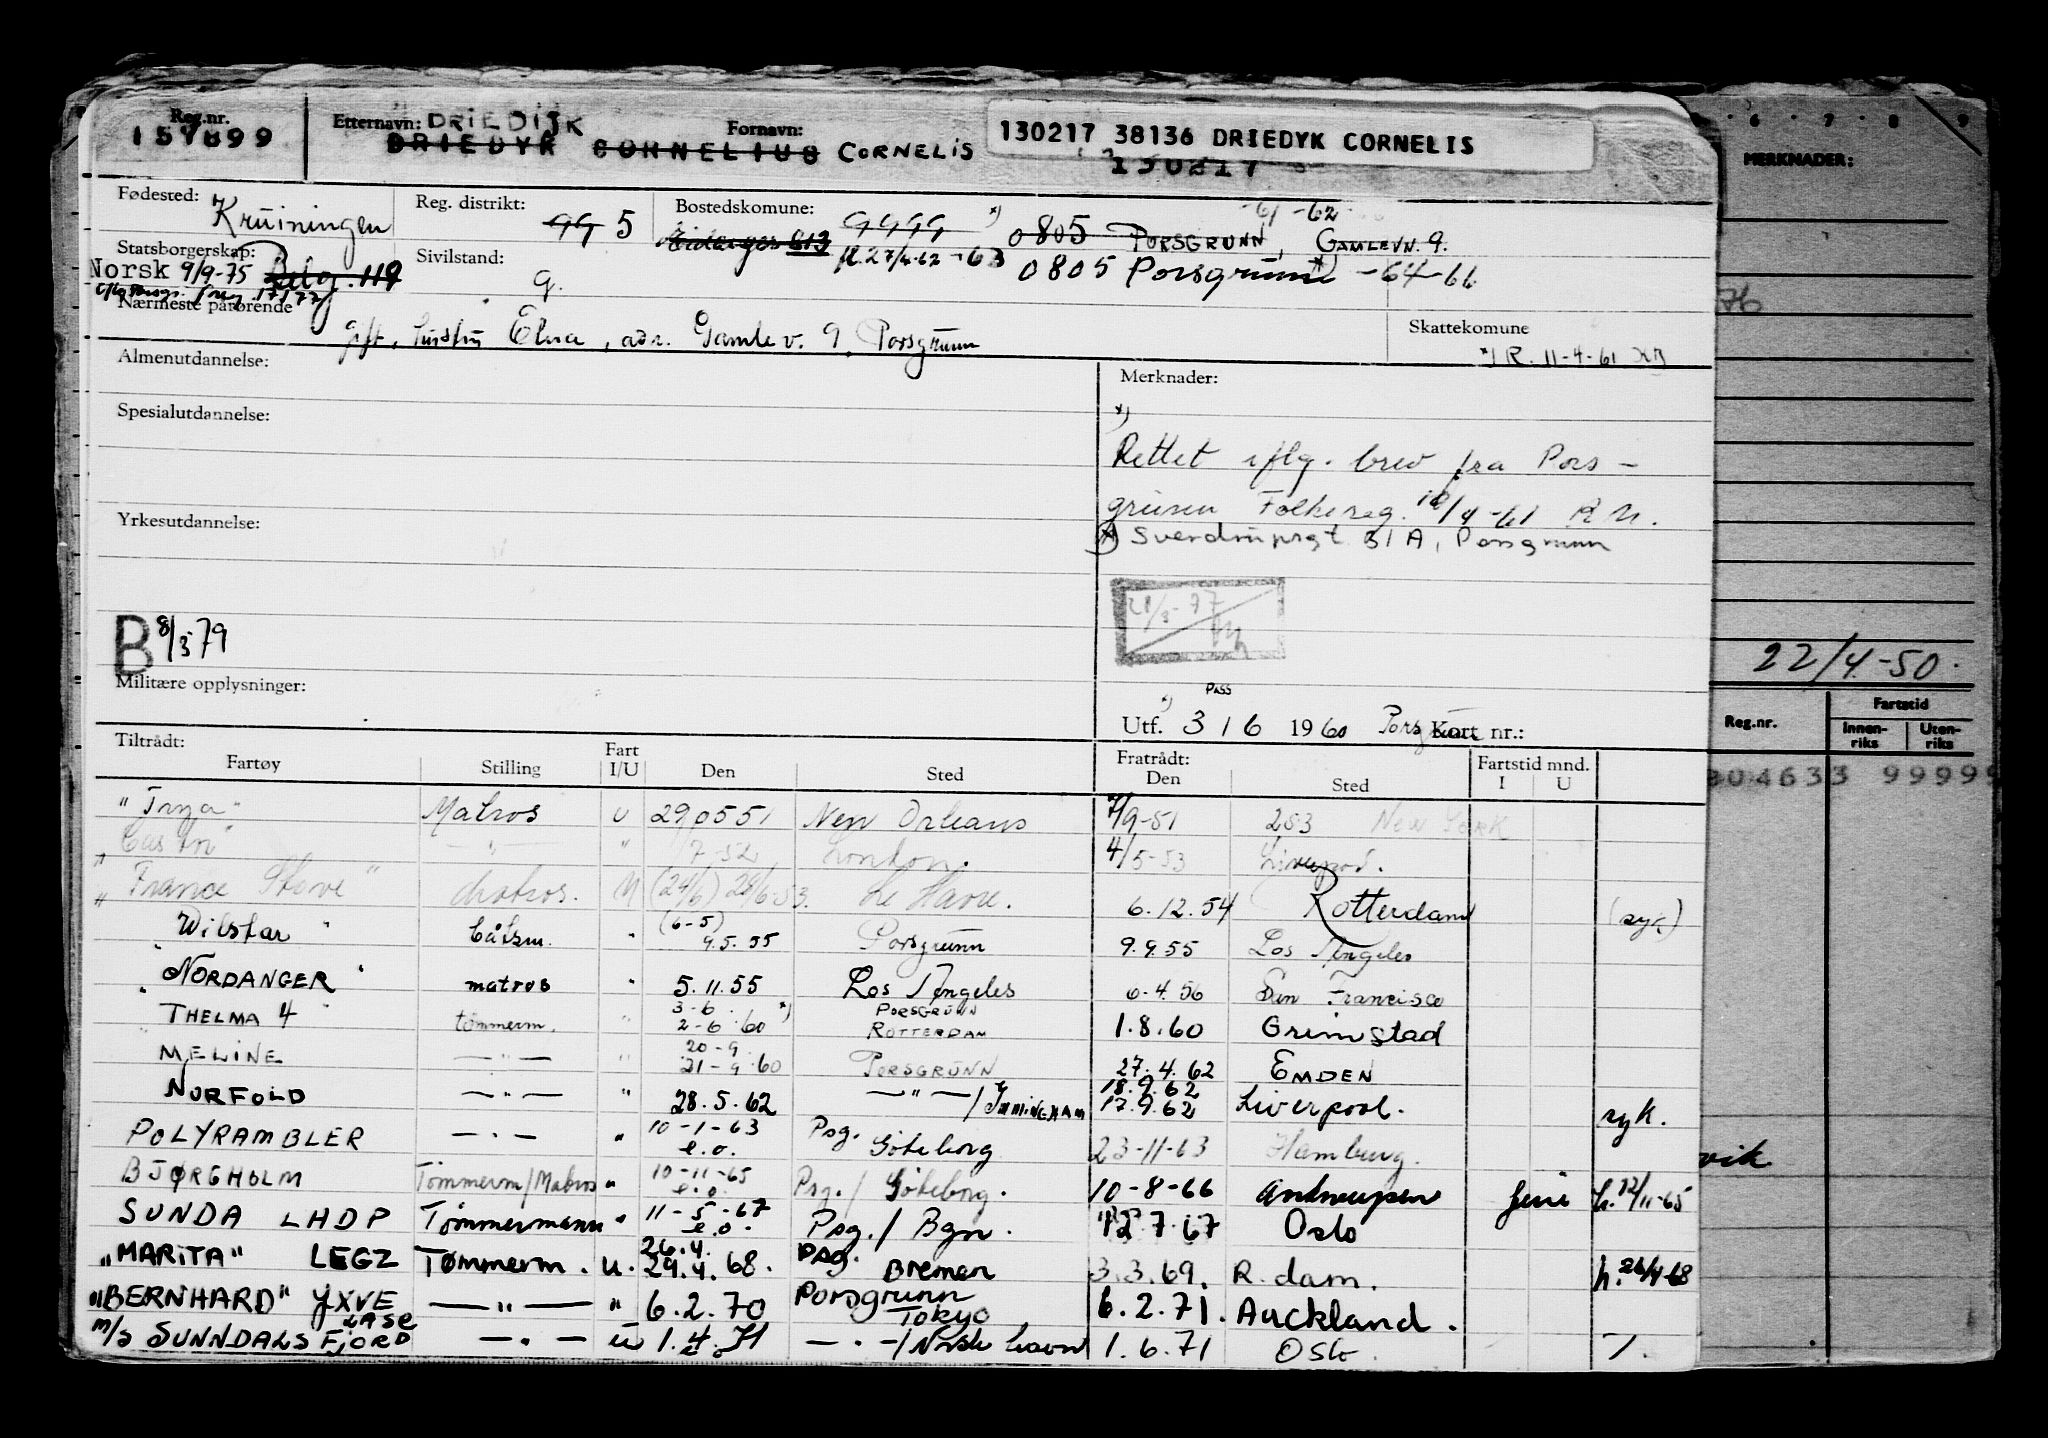 Reg.nr. Etternavn: DRIEDIJK Fornavn: 130217 38136 DRIEDYK CORNELIS
DRIEDYK CORNELIUS CORNELIS 130217
Fødested: Kruiningen Reg. distrikt: 99 5 Bostedskomune: 9999 *) -61 -62
Eidanger 613 0805 PORSGRUNN, GAMLEVN. 9.
Statsborgerskap: Sivilstand: fl. 27/4-62 -63 0805 Porsgrunn -64-66
Norsk 9/9-75 Belg. 119 g.
Nærmeste pårørende
gift, hustru Elna, adr. Gamle v. 9, Porsgrunn Skattekomune
*) R. 11-4-61
Almenutdannelse: Merknader:
*)
Spesialutdannelse:
Rettet iflg. brev fra Pors-
grunn Folkereg. 10/4-61 R N.
Yrkesutdannelse: *) Sverdrupsgt 31A, Porsgrunn
21/3-77
B 8/3 79
Militære opplysninger:
*) PASS
Utf. 3 / 6 1960 Porsgrunn Kort nr.:
Tiltrådt: Fratrådt: Fartstid mnd.
Fartøy Stilling Fart I/U Den Sted Den Sted I U
Matros U 290551 New Orleans 7/9-51 253 NEW YORK
— " — " 7.52 London. 4/5-53 Liverpool.
"France Stove" Matros. U (24/6) 28/6-53. Le Havre. 6.12.54 Rotterdam (syk)
Wilstar " båtsm. " (6-5) 9.5.55 Porsgrunn 9.9.55 Los Angeles
"NORDANGER" matros " 5.11.55 Los Angeles 6.4.56 San Francisco
" THELMA 4 tømmerm. " 3-6. 2-6.60 *) PORSGRUNN ROTTERDAM 1.8.60 Grimstad
MELINE — " — " 20-9. 21-9.60 PORSGRUNN 27.4.62 EMDEN
NORFOLD — " — " 28.5.62 — " — / IMMINGHAM 18.9.62 17.9.62 Liverpool. syk.
POLYRAMBLER — " — " 10-1-63 e.o. Psg. Göteborg 23-11-63 Hamburg.
BJØRGHOLM Tømmerm/Matros " 10-11-65 e.o. Psg. / Göteborg. 10-8-66 Antwerpen h. 12/11-65
SUNDA LHDP Tømmermann " 11-5-67 e.o. Psg. / Bgn. 12.7.67 Oslo
"MARITA" LEGZ Tømmerm. u. 26.4. 29.4.68. Psg. Bremen 3.3.69. R.dam. h. 26/4-68
"BERNHARD" JXVE — " — " 6.2.70 Porsgrunn Tokyo 6.2.71. Auckland.
M/S SUNNDALSFJORD LASE — " — u 1.4.71 — " — / Norsk havn 1.6.71 Oslo
6 7 8 9
MERKNADER:
76
22/4-50.
Reg.nr. Fartstid
Innen-riks Uten-riks
304633 99999
vik